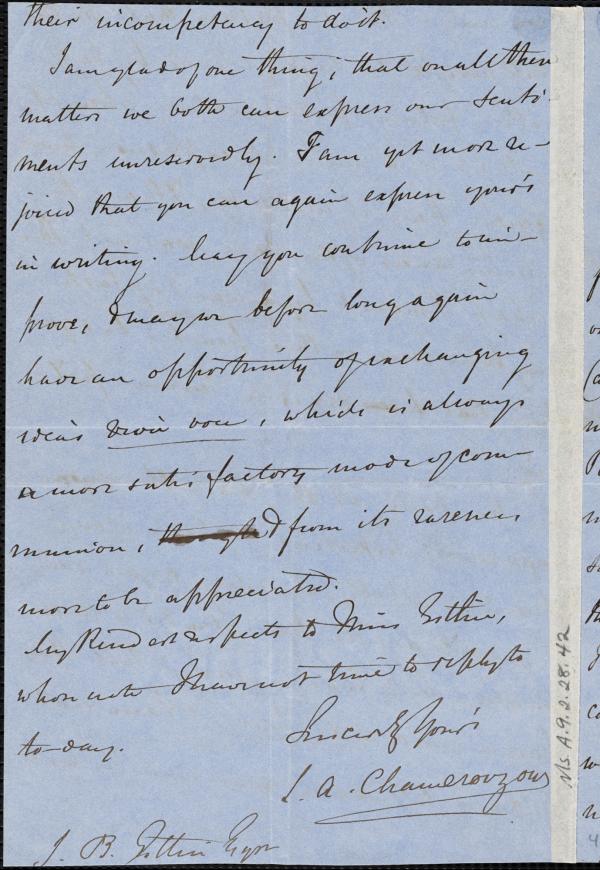 their incompetency to do it.
I am glad of one thing; that on all these
matters we both can express our senti-
ments unreservedly. I am yet more re-
joiced that you can again express yours
in writing. May you continue to im-
prove, & may we before long again
have an opportunity of exchanging
ideas vivâ voce, which is always
a more satisfactory mode of com-
munion, though & from its rareness
more to be appreciated.
My kindest respects to Miss Estlin,
whose note I have not time to reply to
to-day.
Sincerely Yours
L. A. Chamerovzow
J. B. Estlin Esqre
Ms. A.9.2.28.42